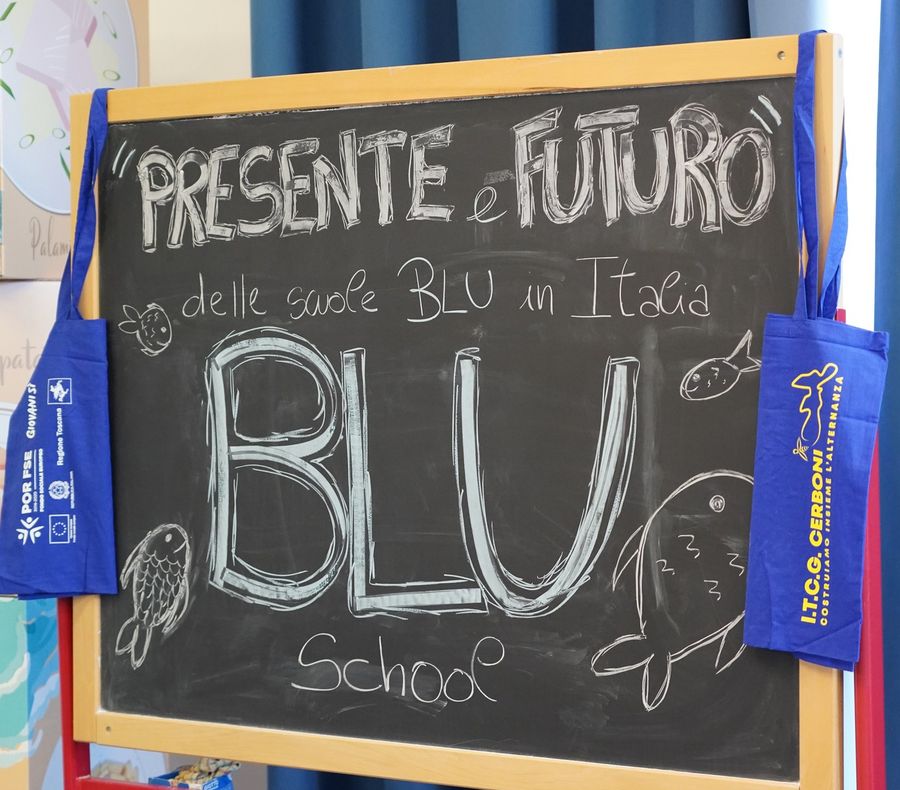 "PRESENTE e FUTURO"
delle scuole BLU in Italia
BLU
School
POR FSE
GIOVANISÌ
Regione Toscana
I.T.C.G. CERBONI
COSTRUIAMO INSIEME L'ALTERNANZA
Palam